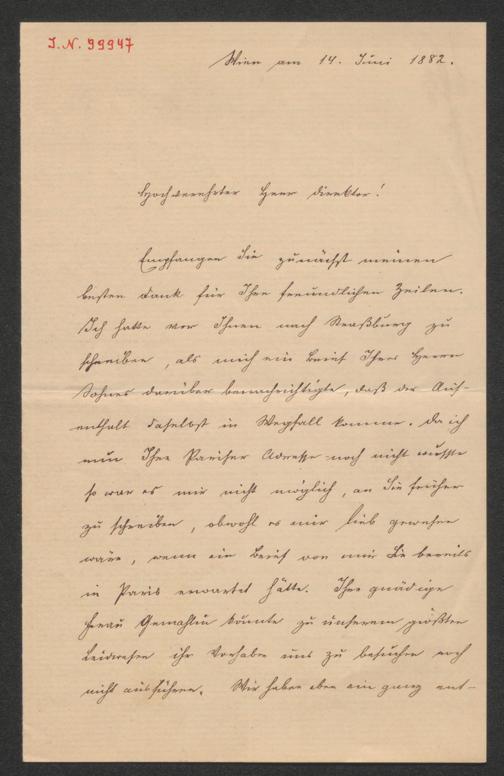 J.N. 99947
Wien am 14. Juni 1882.
Hochverehrter Herr Direktor!
Empfangen Sie zunächst meinen
besten Dank für Ihre freundlichen Zeilen.
Ich hatte vor Ihnen nach Straßburg zu
schreiben, als mich ein Brief Ihres Herrn
Sohnes darüber benachrichtigte, daß der Auf-
enthalt daselbst in Wegfall komme. Da ich
nun Ihre Pariser Adresse noch nicht wußte
so war es mir nicht möglich, an Sie früher
zu schreiben, obwohl es mir lieb gewesen
wäre, wenn ein Brief von mir Sie bereits
in Paris erwartet hätte. Ihre gnädige
Frau Gemahlin konnte zu unserem größten
Leidwesen ihr Vorhaben uns zu besuchen noch
nicht ausführen. Wir haben aber ein ganz ent-